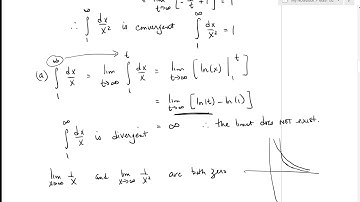 lim t→∞ [-1/t + 1] = 1
∴ ∫₁^∞ dx/x² is convergent ∫₁^∞ dx/x² = 1
(a) ∫₁^∞ dx/x = lim t→∞ ∫₁^t dx/x = lim t→∞ [ln(x) |₁^t]
= lim t→∞ [ln(t) - ln(1)]
∫₁^∞ dx/x is divergent = ∞ ∴ the limit does NOT exist.
lim x→∞ 1/x and lim x→∞ 1/x² are both zero